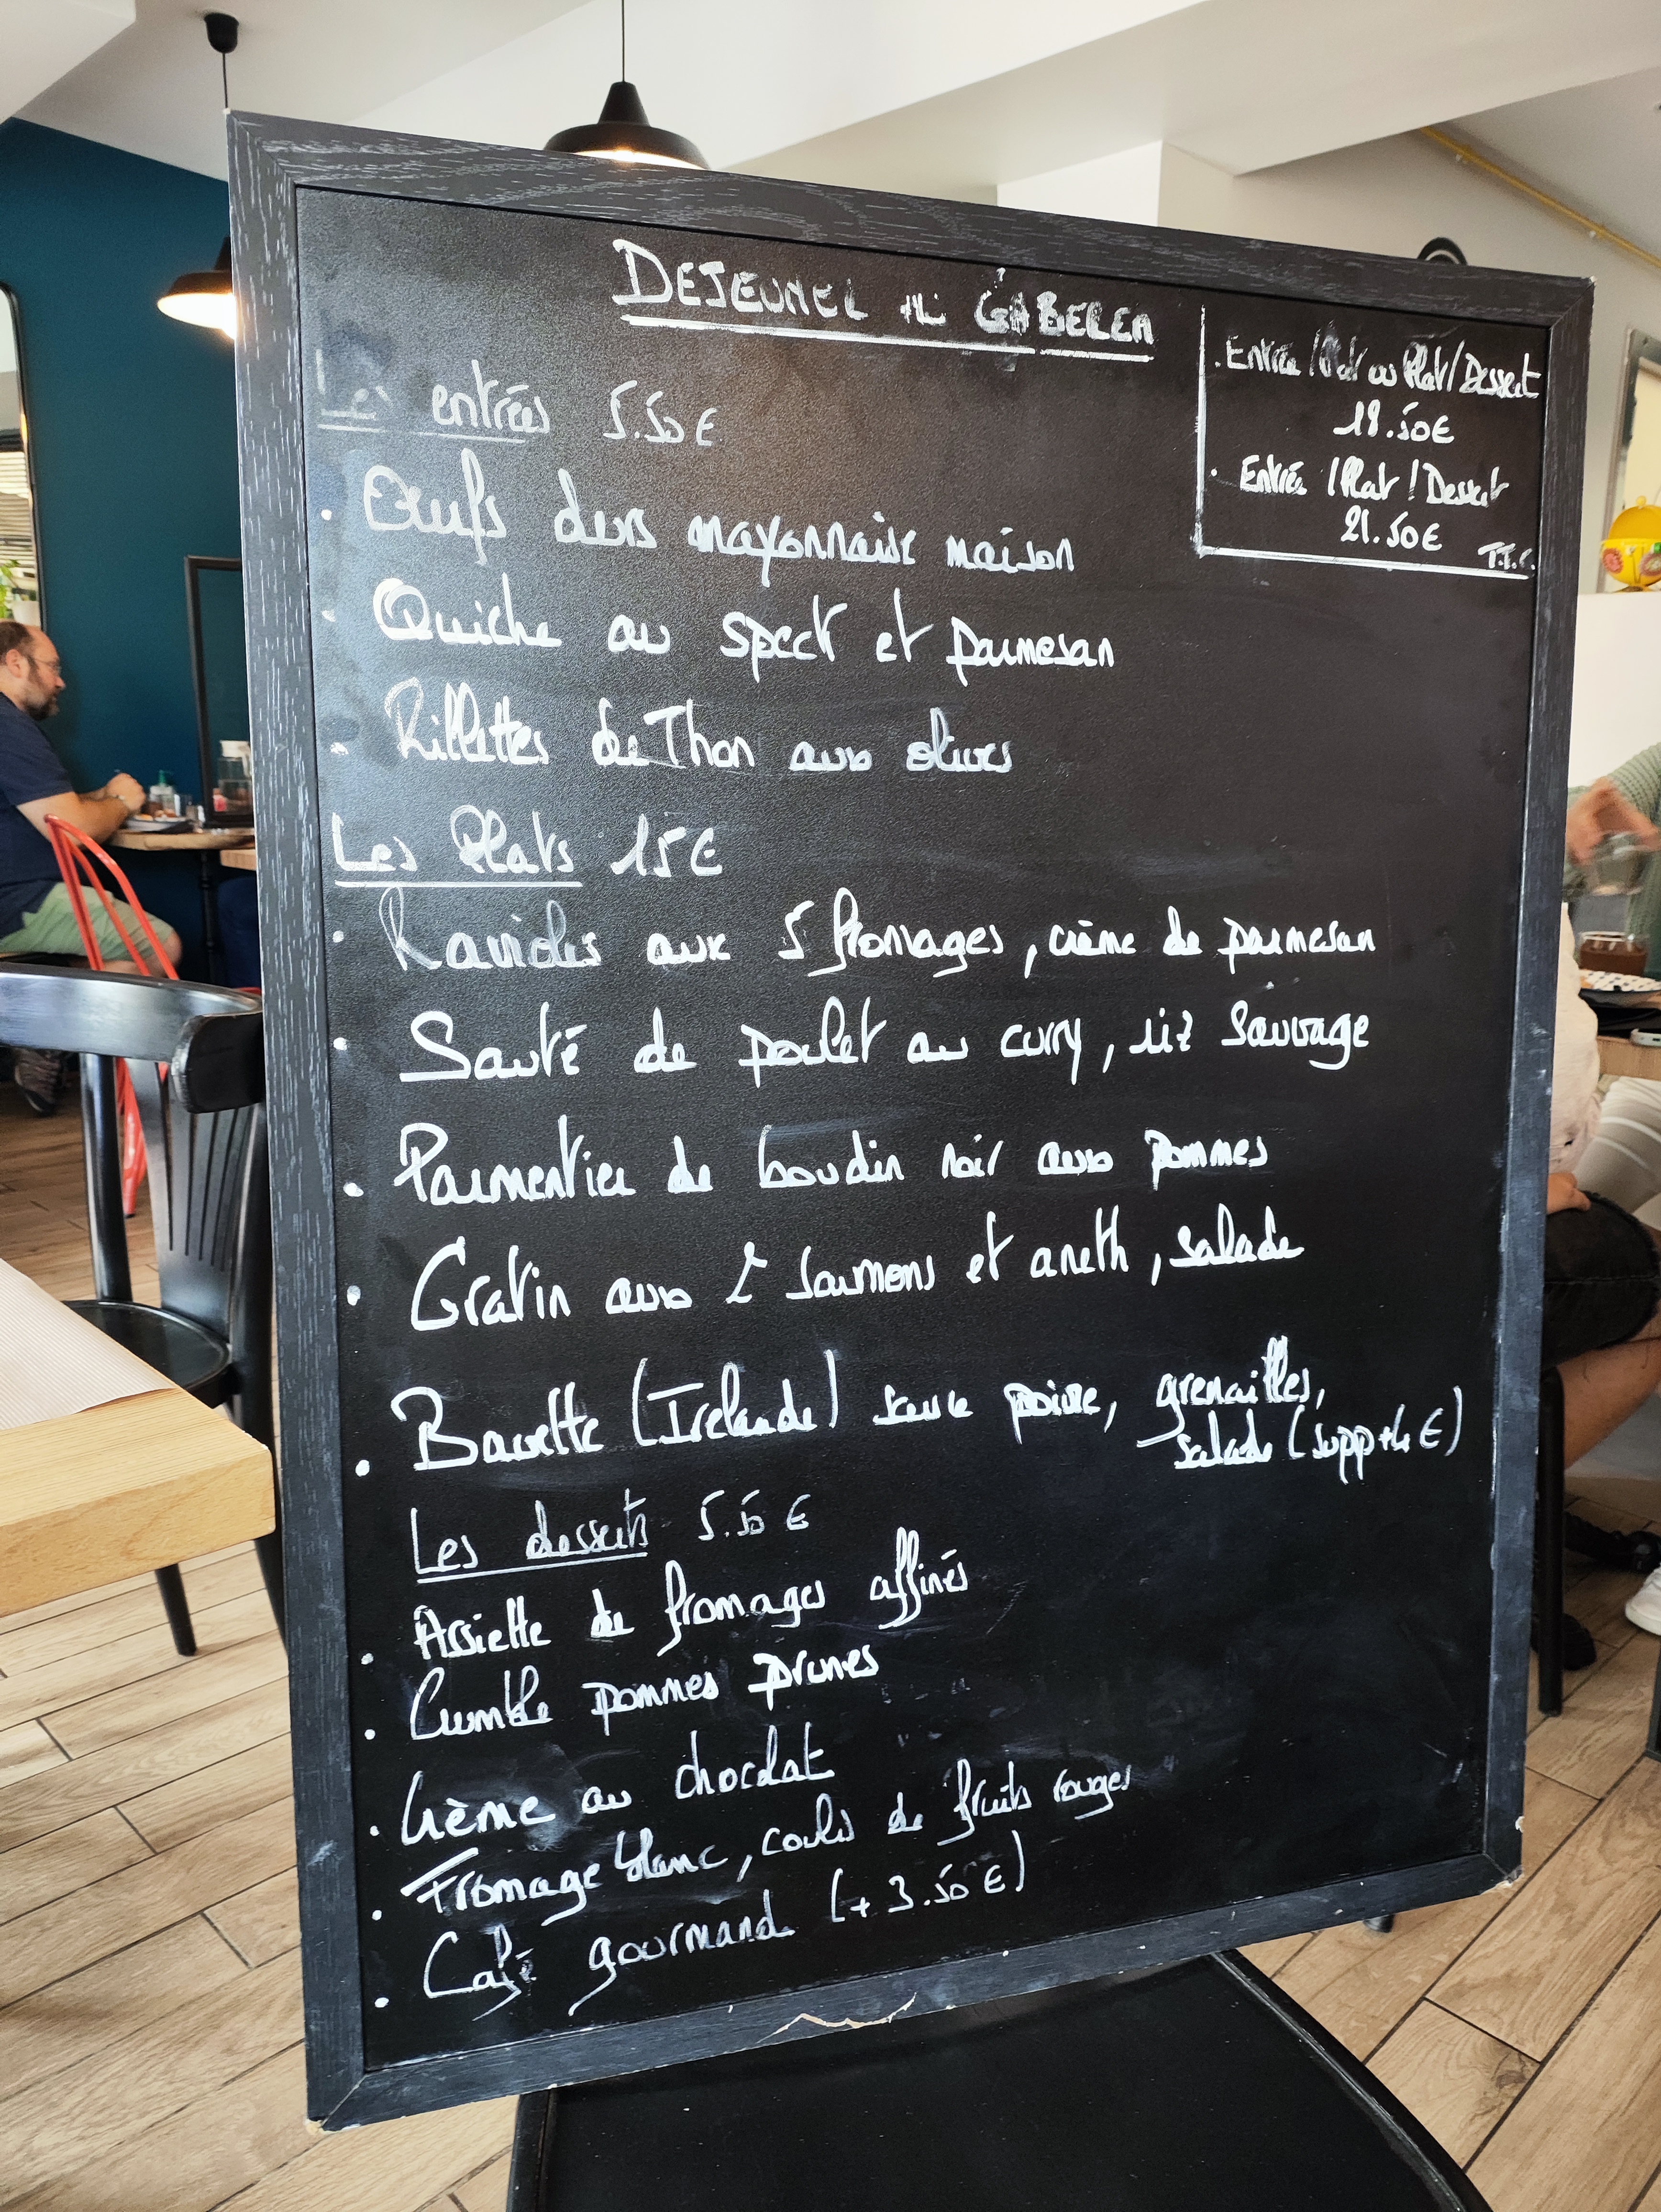 DEJEUNER
Entrée / Plat ou Plat / Dessert
18.50€
Entrée / Plat / Dessert
21.50€
T.T.C.
Les entrées 5.50€
• Œufs durs mayonnaise maison
• Quiche au speck et parmesan
• Rillettes de Thon aux olives
Les Plats 15€
• Ravioles aux 5 fromages, crème de parmesan
• Sauté de poulet au curry, riz sauvage
• Parmentier de boudin noir aux pommes
• Gratin aux 2 saumons et aneth, salade
• Bavette (Irelande) sauce poivre, grenailles,
salade (supp +4€)
Les desserts 5.50€
• Assiette de fromages affinés
• Crumble pommes prunes
• Crème au chocolat
• Fromage blanc, coulis de fruits rouges
• Café gourmand (+3.50€)